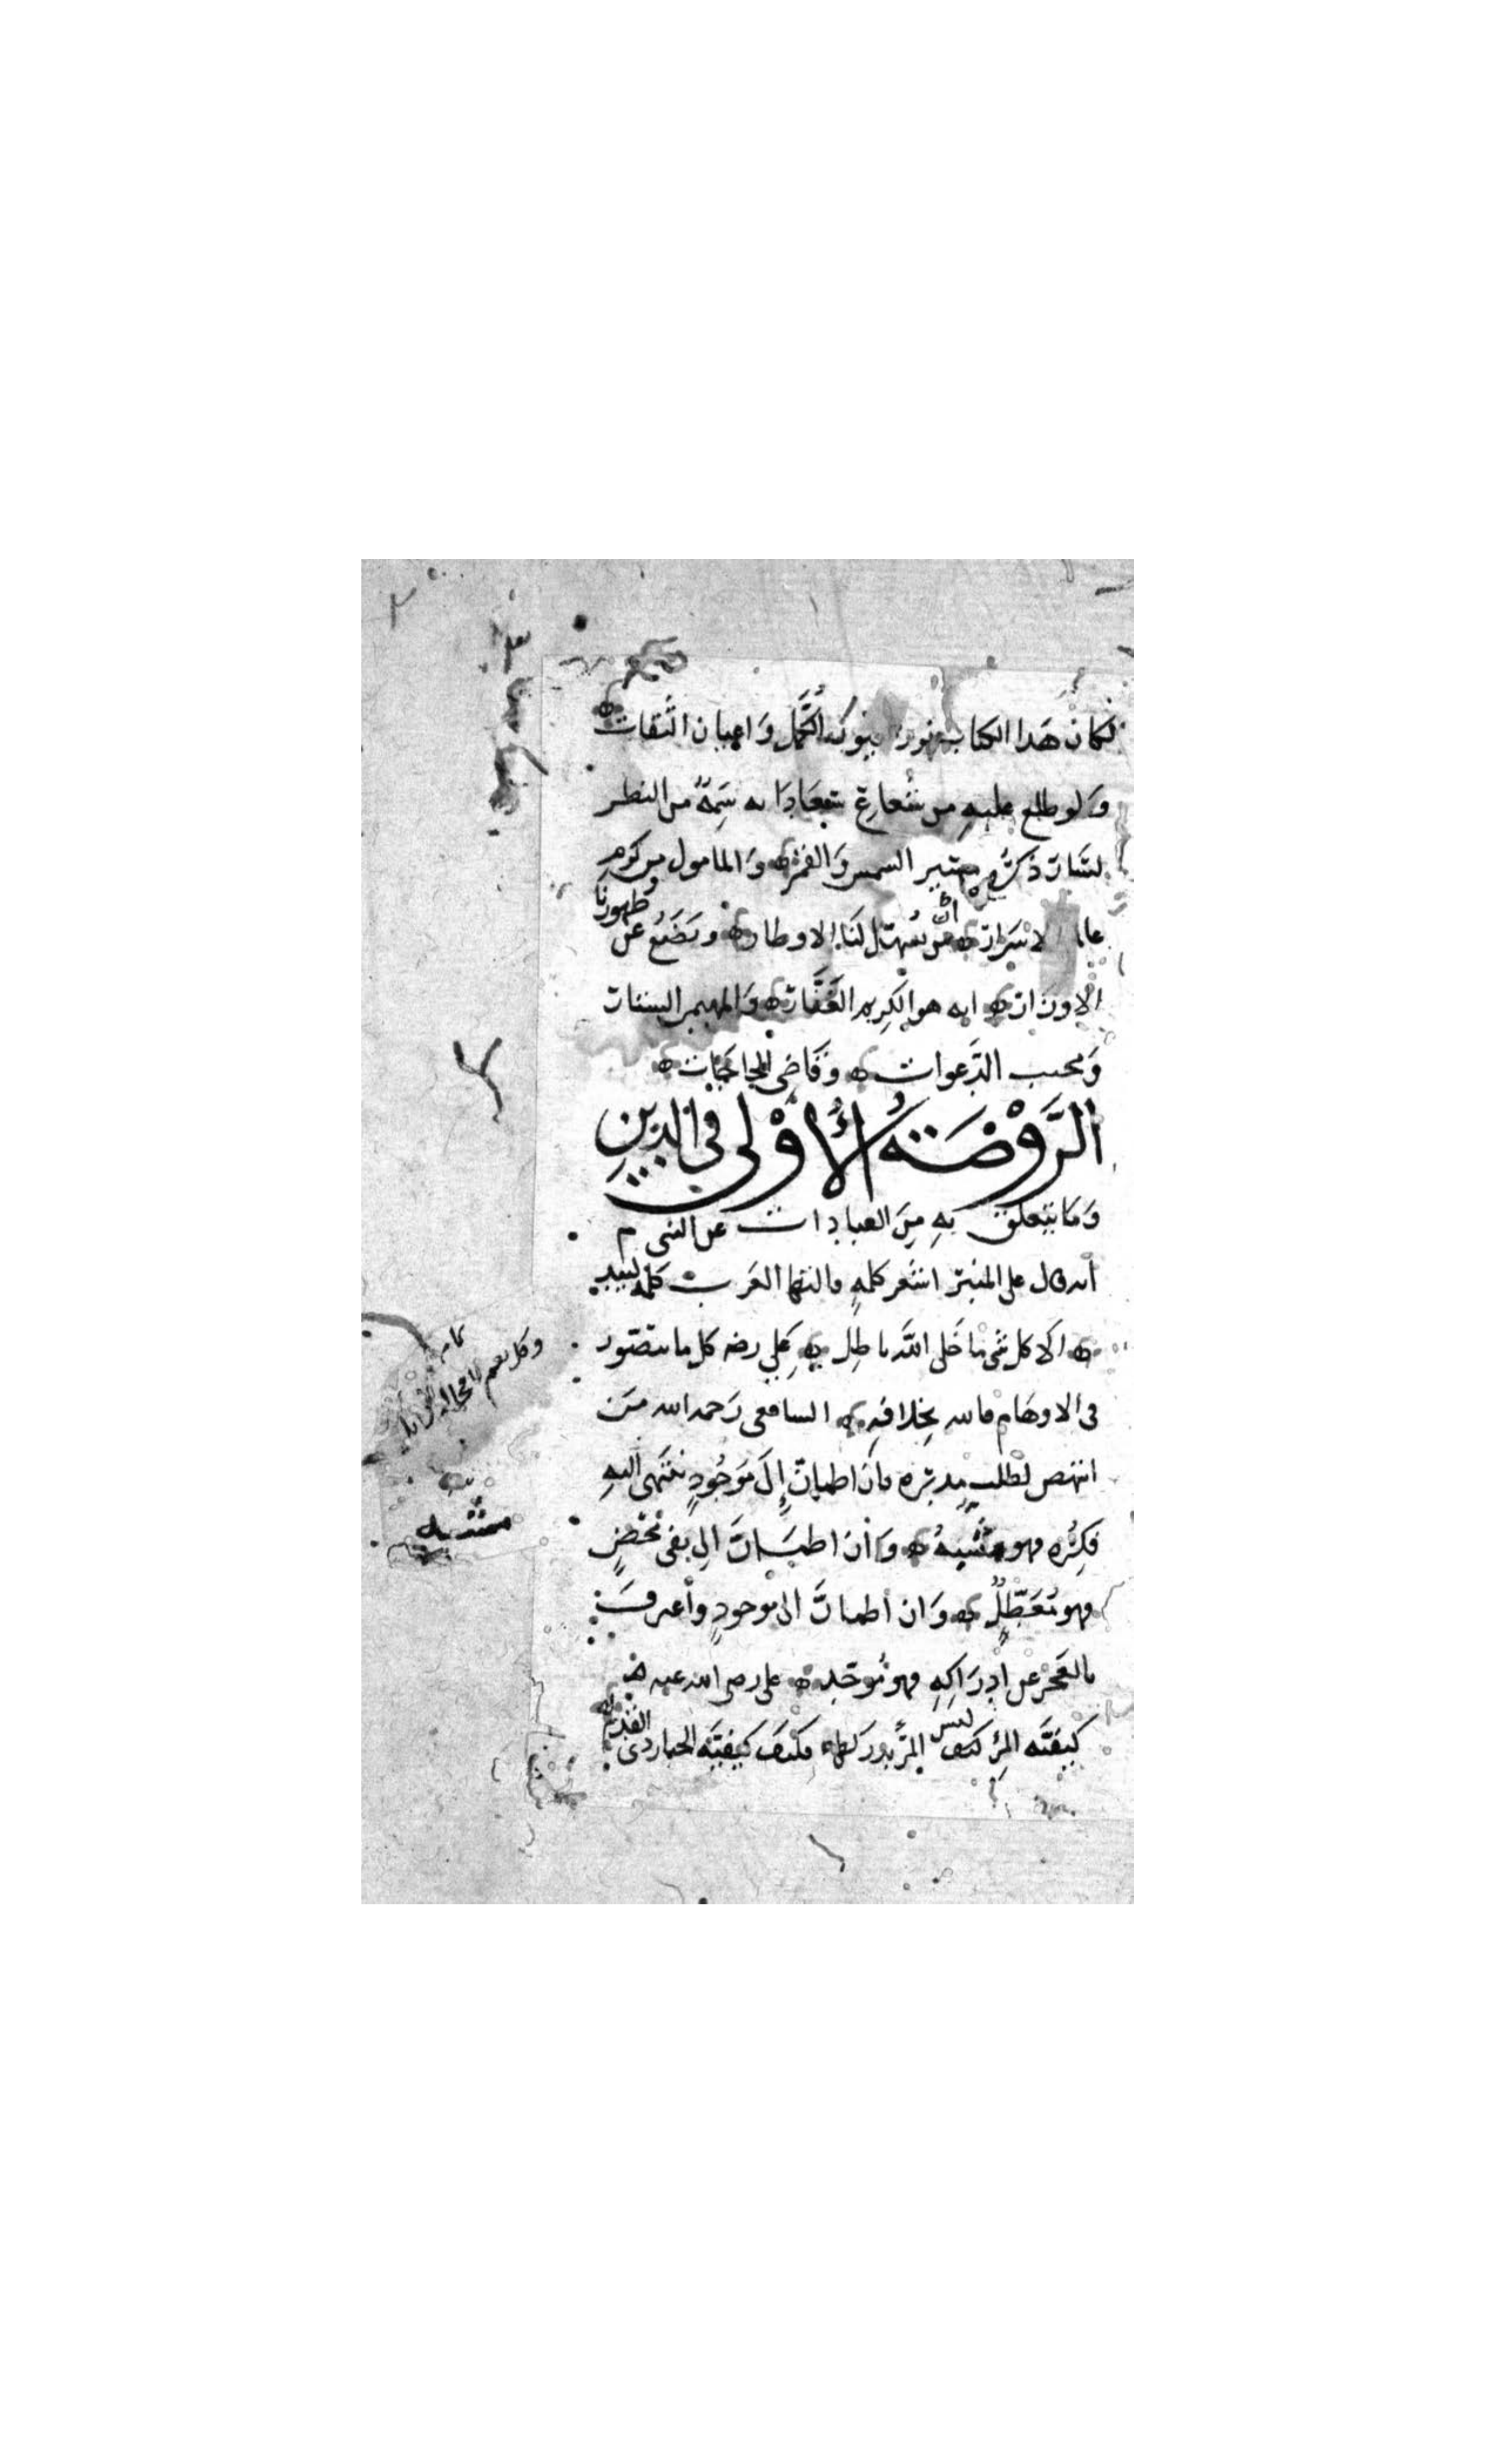 لكان هذا الكتاب الكمّل واعيان الثقات
ولو طلع عليه من سعادا به سمة من النظر
لسارت ذكره مسير الشمس والقمر والمامول من كرم
الاسرار ان يسهل لنا الاوطار ويضع عن ظهورنا
الاوزار انه هو الكريم الغفار والمهيمن الستار
ومجيب الدعوات وقاضي الحاجات
الرَّوْضَةُ الأُوْلى في الدين
وَمَا يتعلق بِهِ مِنَ العبادات عن النبى م
انه قال على المنبر اشعر كلمةٍ قالتها العَرب كلمة لبيد
الا كل شى ما خلى الله باطل عَلي رضه كل ما يتصور
فى الاوهام فالله بِخلافِهِ الشافعى رَحمه الله مَن
انتهض لطلب مدبره فان اطمانّ إلى مَوجُودٍ ينتهى اليه
فكره فهو مشبهٌ وَان اطمانَّ الى نفى محضٍ
فهو مُعَطِّلٌ وَان اطمانَّ الى موجودٍ واعترفَ
بالعَجز عن ادرَاكِهِ فهو مُوَحّد على رضى الله عنه
كيفيّة المرء ليس المرء يدركها فكيفَ كيفيّة الجبار ذى القدم
تمامه
وكل نعيم لا محالة زايل
مشبه